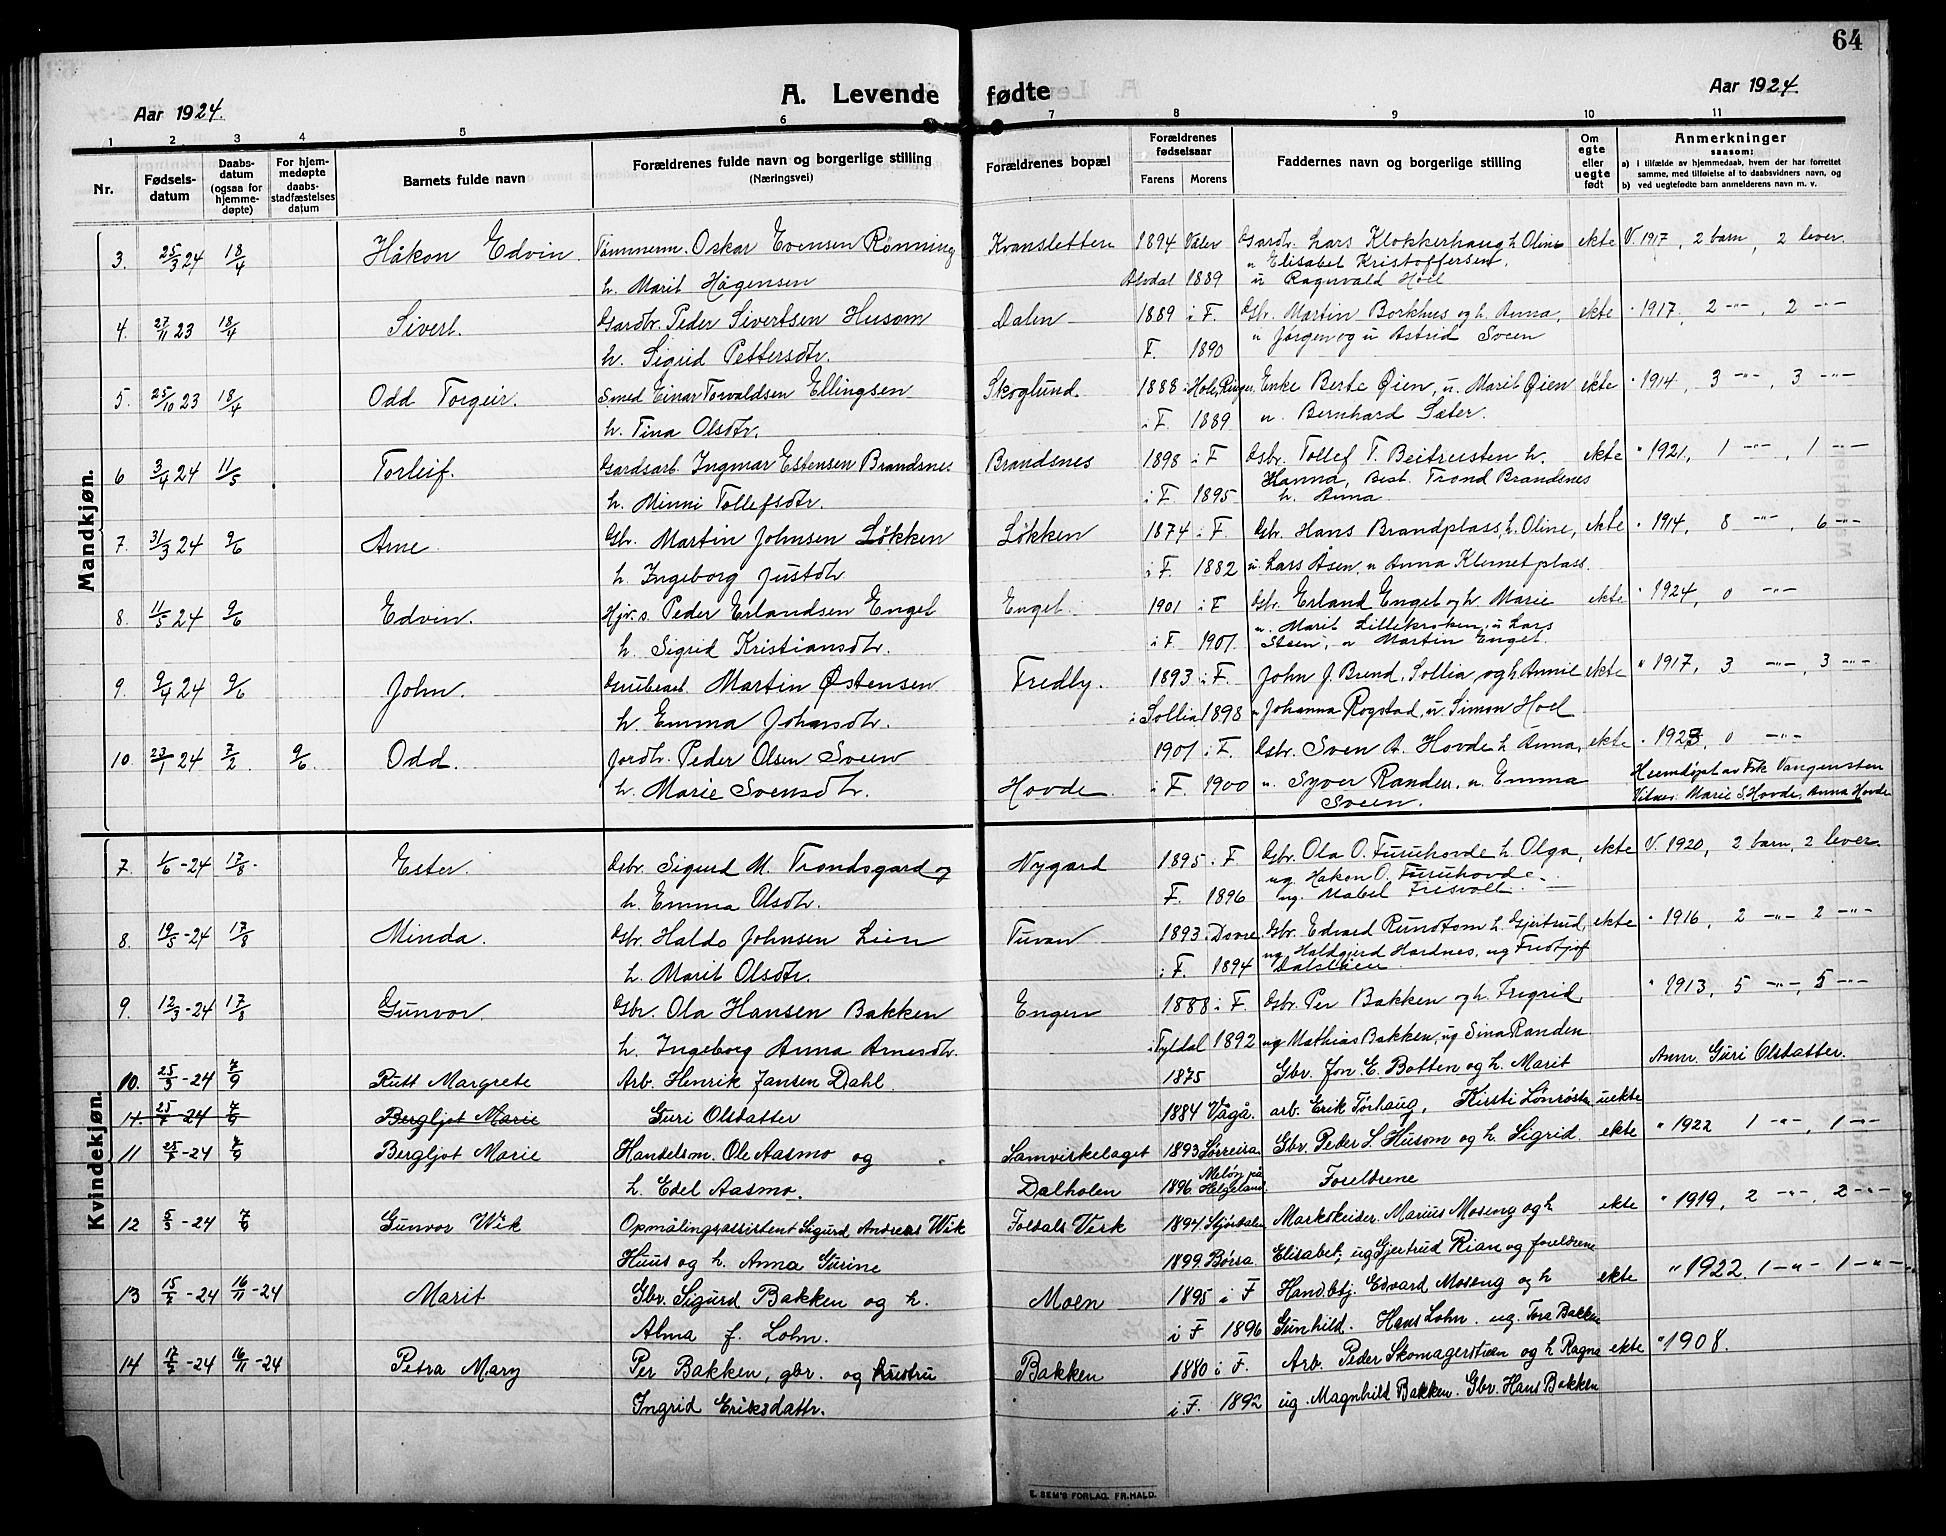 64
Aar 1924.
A. Levende fødte
Aar 1924.
1 2 3 4 5 6 7 8 9 10 11
Nr.
Fødsels-
datum
Daabs-
datum
(ogsaa for
hjemme-
døpte)
For hjem-
medøpte
daabs-
stadfæstelses
datum
Barnets fulde navn
Forældrenes fulde navn og borgerlige stilling
(Næringsvei)
Forældrenes bopæl
Forældrenes
fødselsaar
Farens Morens
Faddernes navn og borgerlige stilling
Om
egte
eller
uegte
født
Anmerkninger
saasom:
a) i tilfælde av hjemmedaab, hvem der har forrettet
samme, med tilføielse af to daabsvidners navn, og
b) ved uegtefødte barn anmelderens navn m. v.
Mandkjøn.
3. 25/3 24 18/4 Håkon Edvin. Tømmerm. Oskar Evensen Rønning Kvansletten 1894 Våler Gardbr. Lars Klokkerhaug h. Oline ekte V. 1917, 2 barn, 2 lever.
u Elisabet Kristoffersen,
h. Marit Hågensen Alvdal 1889 u Ragnvald Hoel
4. 27/11 23 18/4 Sivert. Gardbr. Peder Sivertsen Husom Dalen 1889 i F. Gbr. Martin Borkhus og h. Anna, ekte " 1917, 2 -"-, 2 -"-
h. Sigrid Pettersdtr. F. 1890 u Jørgen og u Astrid Sveen
5. 25/10 23 18/4 Odd Torgeir. Smed Einar Torvaldsen Ellingsen Skoglund 1888 Hole, Ringer. Enke Berte Øien, u. Marit Øien ekte " 1914, 3 -"-, 3 -"-
h. Tina Olsdtr. i F. 1889 u. Bernhard Sæter.
6 3/4 24 11/5 Torleif. Gardsarb. Ingmar Estensen Brandsnes Brandsnes 1898 i F Gbr. Tollef T. Beitrusten h. ekte " 1921, 1 -"-, 1 -"-
Hanna, Best. Trond Brandsnes
h. Minni Tollefsdtr. i F. 1895 h. Anna
7. 31/3 24 9/6 Arne. Gbr. Martin Johnsen Løkken Løkken 1874 i F. Gbr. Hans Brandplass, h. Oline, ekte " 1914, 8 -"-, 6 -"-
h. Ingeborg Justdtr i F. 1882 u. Lars Åsen, u Anna Klemetplass.
8. 11/5 24 9/6 Edvin. Hjv. s. Peder Erlandsen Enget Enget. 1901 i F Gbr. Erland Enget og h. Marie ekte " 1924, 0 -"-
u. Marit Lillekroken, u Lars
h. Sigrid Kristiansdtr. i F. 1901. Steen, u Martin Enget.
9. 9/4 24 9/6 John. Grubearb. Martin Østensen Fredly. 1893 i F. John J. Brend, Sollia og h Annie ekte " 1917, 3 -"-, 3 -"-
h. Emma Johansdtr. i Sollia 1898 u Johanna Rogstad, u. Simon Hoel
10. 23/1 24 7/2 9/6 Odd. Jordbr. Peder Olsen Sveen 1901 i F. Gbr. Sven A. Hovde h Anna, ekte " 1923, 0 -"-
h. Marie Svensdtr. Hovde. i F. 1900 u. Syver Randen, u Emma Heimdøpt av Frk Vangensten
Sveen. Vitner Marie S. Hovde, Anna Hovde
Kvindekjøn.
7. 1/6 -24 17/8. Ester. Gbr. Sigurd M. Trondsgard og Nygard 1895 i F Gbr. Ola O. Furuhovde h. Olga, ekte V. 1920, 2 barn, 2 lever.
ug. Hakon O. Furuhovde
h. Emma Olsdtr. F. 1896 ug. Mabel Frisvoll.
8. 19/5 -24 17/8 Minda. Gbr. Haldo Johnsen Lien Tuvan 1893 Dovre. Gbr. Edvard Rundtom h. Gjertrud, ekte " 1916, 2 -"- 2 -"-
ug Haldgjerd Hardnes, ug Fridtjof
h. Marit Olsdtr. i F. 1894 Dalsløien.
9. 12/3 -24 17/8 Gunvor. Gbr. Ola Hansen Bakken Engen 1888 i F. Gbr. Per Bakken og h. Ingrid, " 1913, 5 -"-, 5 -"-
h. Ingeborg Anna Arnesdtr. i Tyldal 1892 ug Mathias Bakken, ug Sina Randen
10. 25/5 -24 7/9 Rutt Margrete Arb. Henrik Jansen Dahl. 1875 Gbr. Jon E. Botten og h. Marit Anm. Guri Olsdatter.
11. 25/7 -24 7/9 Bergljot Marie Guri Olsdatter 1884 Vågå. arb. Erik Torhaug, Kirsti Lønrøsta uekte
11 25/7 -24 7/9 Bergljot Marie Handelsm. Ole Aasmo og Samvirkelaget 1893 Sørreisa. Gbr. Peder S. Husom og h. Sigrid. ekte " 1922 1 -"-, 1 -"-
h. Edel Aasmo. Dalholen 1896 Meløy på Helgeland. Foreldrene
12 5/5 -24 7/9 Gunvor Wik Opmålingsassistent Sigurd Andreas Wik Foldals Verk 1894. Stjørdalen Markskeider. Marius Moseng og h ekte " 1919, 2 -"-, 2 -"-
Huus og h. Anna Gurine 1899. Børsa Elisabet; ug Gjertrud Rian og foreldrene
13 15/7 -24 16/11 -24 Marit Gbr. Sigurd Bakken og h. Moen 1895 i F Hand.btj. Edvard Moseng og h ekte " 1922. 1 -"- 1 -"-
Alma f. Lohn. i F 1896 Gunhild. Hans Lohn. ug. Tora Bakken
14 17/7 -24 16/11 -24 Petra Mary Per Bakken, gbr. og hustru Bakken 1880 i F. Arb. Peder Skomagerstuen og h Ragna ekte " 1908.
Ingrid Eriksdattr. i F. 1892 ug. Magnhild Bakken. Gbr. Hans Bakken
E. SEM'S FORLAG. FR.HALD.